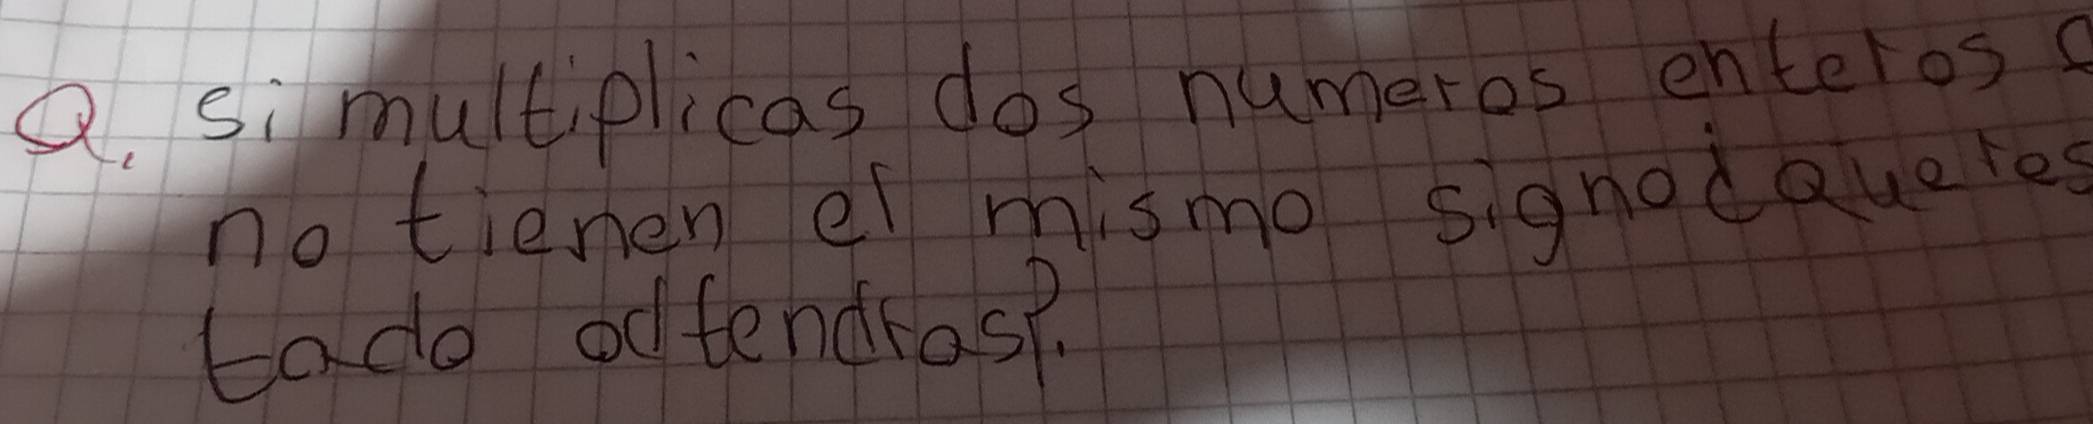 Q. si multiplicas dos numeros enteros
no tienen el mismo signo¿Que res
tado odtendras?.